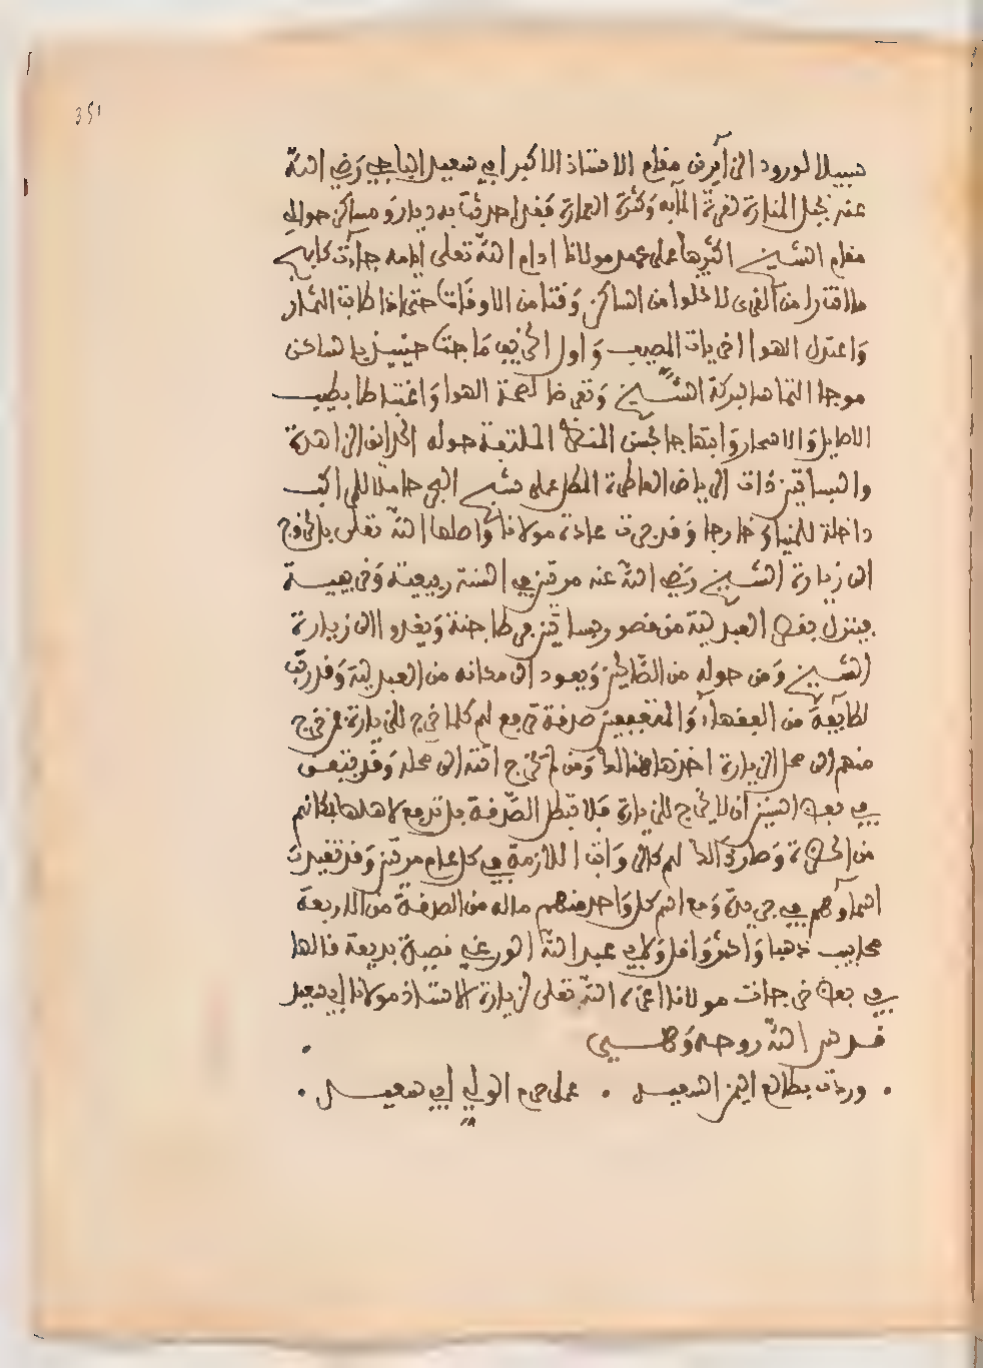 351
سبيلا لورود الى امرف مقام الاستاذ الاكبر ابي سعيد الباجي رضي الله
عنه بجبل المنارة لقربة المآبه وكثرة العمارة فقد احدثت به ديار ومساكن حوالي
مقام الشيخ اكثرها على عهد مولانا ادام الله تعلى ايامه جاءت كابهج
ما اقترا من القرى لا تخلوا من الساكن وقتا من الاوقات حتى اذا طابت الثمار
واعتدل الهوا اخريات المصيف واول الخريف ماجت حينيذ بالساكن
موجا التماسا لبركة الشيخ وتعرضا لصحة الهوا واغتباطا بطيب
الاصايل والاسحار وابتهاجا بحسن المنظر الملتفة حوله الحدائق الزاهرة
والبساتين ذات الرياض العاطرة المطل على شبح البحر حاملا للمراكب
داخلة للمنيا وخارجا وقد جرت عادة مولانا واصلها الله تعلى بالخروج
الى زيارة الشيخ رضي الله عنه مرتين في السنة ربيعية وخريفية
فينزل بقصر العبدلية من قصور بساتين مرطاجنة ويغدوا الى زيارة
الشيخ ومن حوله من الصالحين ويعود الى مكانه من العبدلية وقد رتب
لطايفة من الفقهآء والمتفقهين صدقة تدفع لهم كلما خرج للزيارة فمن خرج
منهم الى محل الزيارة اخذها هنالك ومن لم يخرج اتته الى محله وقد يتفق
في بعض السنين ان لا يخرج للزيارة فلا تبطل الصدقة بل تدفع لاهلها بمكانهم
من الحضرة وصار ذلك لهم كالراتب اللازمة في كل عام مرتين وقد تقيدت
اسماوهم في جريدة ومع اسم كل واحد منهم ماله من الصدقة من الاربعة
محابيب ذهبا واكثر واقل ولابي عبد الله الورغي قصيدة بديعة قالها
في بعض خرجات مولانا اعزه الله تعلى لزيارة الاستاذ مولانا ابي سعيد
قدس الله روحه وهي
وردت بطالع اليمن السعيد . على حرم الولي ابي سعيد .